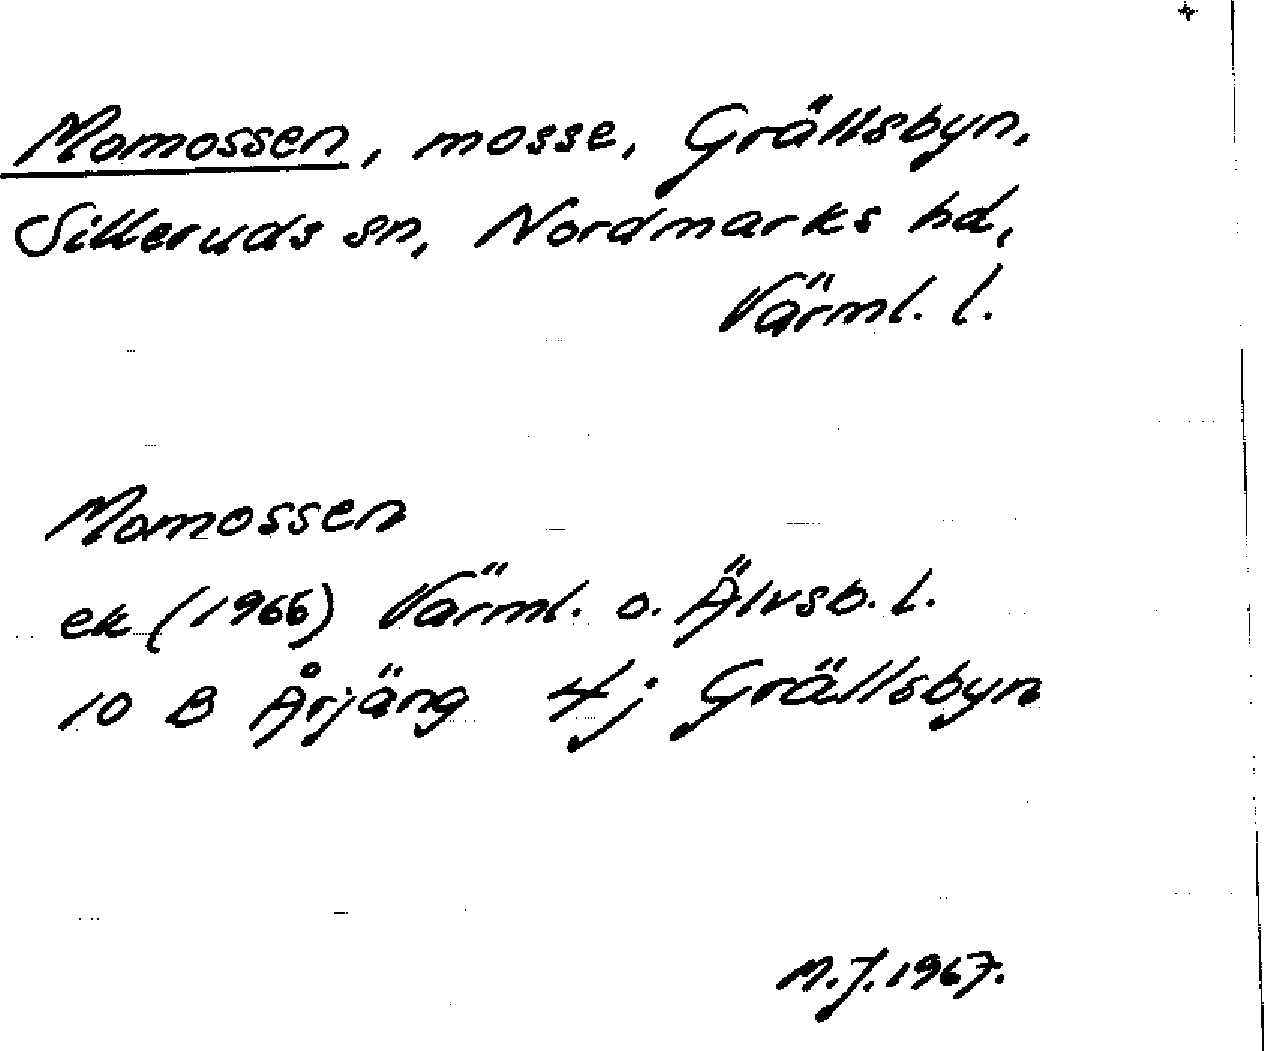 Momossen, mosse, Grällsbyn,
Silleruds sn, Nordmarks hd,
Värml. l.
Momossen
ek (1966) Värml. o. Älvsb. l.
10 B Årjäng 4j Grällsbyn
M.J. 1967.